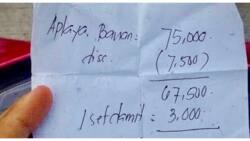 Aplaya Bawan: 75,000.
disc. (7,500)
67,500.
1 set = 3,000.